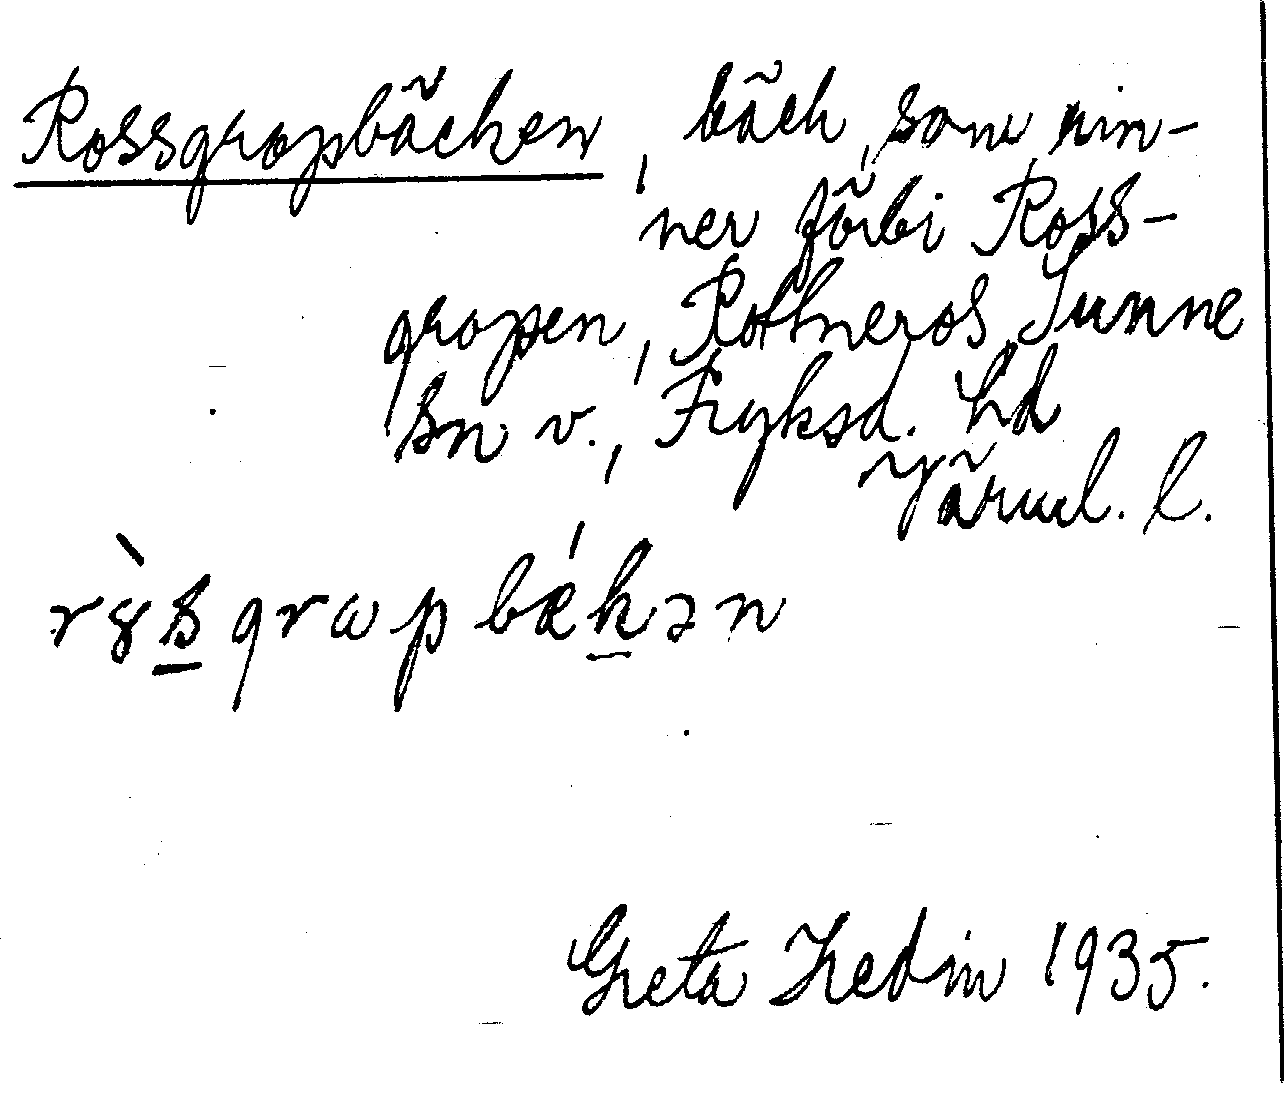 Rossgropbäcken, bäck, som rin-
ner förbi Ross-
gropen, Rottneros, Sunne
sn v., Fryksd. hd
Värml. l.
rȣ̀s̲grɯpbǽk̲ən
Greta Hedin 1935.